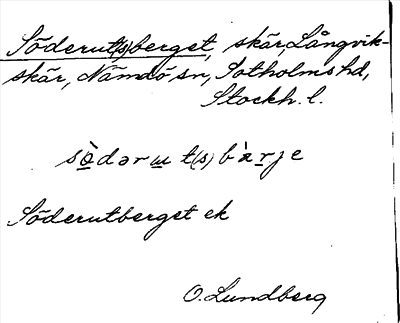 Söderut(s)berget, skär, Långvik-
skär, Nämdö sn, Sotholms hd,
Stockh. l.
sȍ̱dərɯt(s)bæ̀rje
Söderutberget ek
O. Lundberg